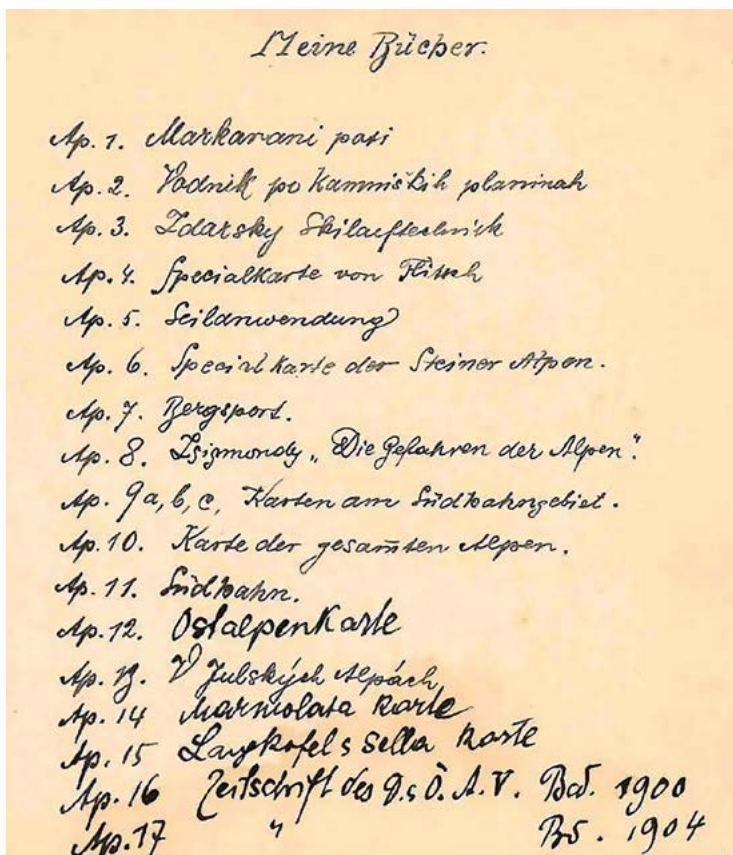 Meine Bücher.
Ap. 1. Markarani poti
Ap. 2. Vodnik po Kamniških planinah
Ap. 3. Zdarsky Skilauftechnik
Ap. 4. Specialkarte von Flitsch
Ap. 5. Seilanwendung
Ap. 6. Specialkarte der Steiner Alpen.
Ap. 7. Bergsport.
Ap. 8. Zsigmondy „Die Gefahren der Alpen".
Ap. 9a, b, c, Karten am Südbahngebiet.
Ap. 10. Karte der gesam̄ten Alpen.
Ap. 11. Südbahn.
Ap. 12. Ostalpenkarte
Ap. 13. V Julských Alpách
Ap. 14 Marmolata Karte
Ap. 15 Langkofel s Sella Karte
Ap. 16 Zeitschrift des D.s Ö. A. V. Bd. 1900
Ap. 17 " Bd. 1904